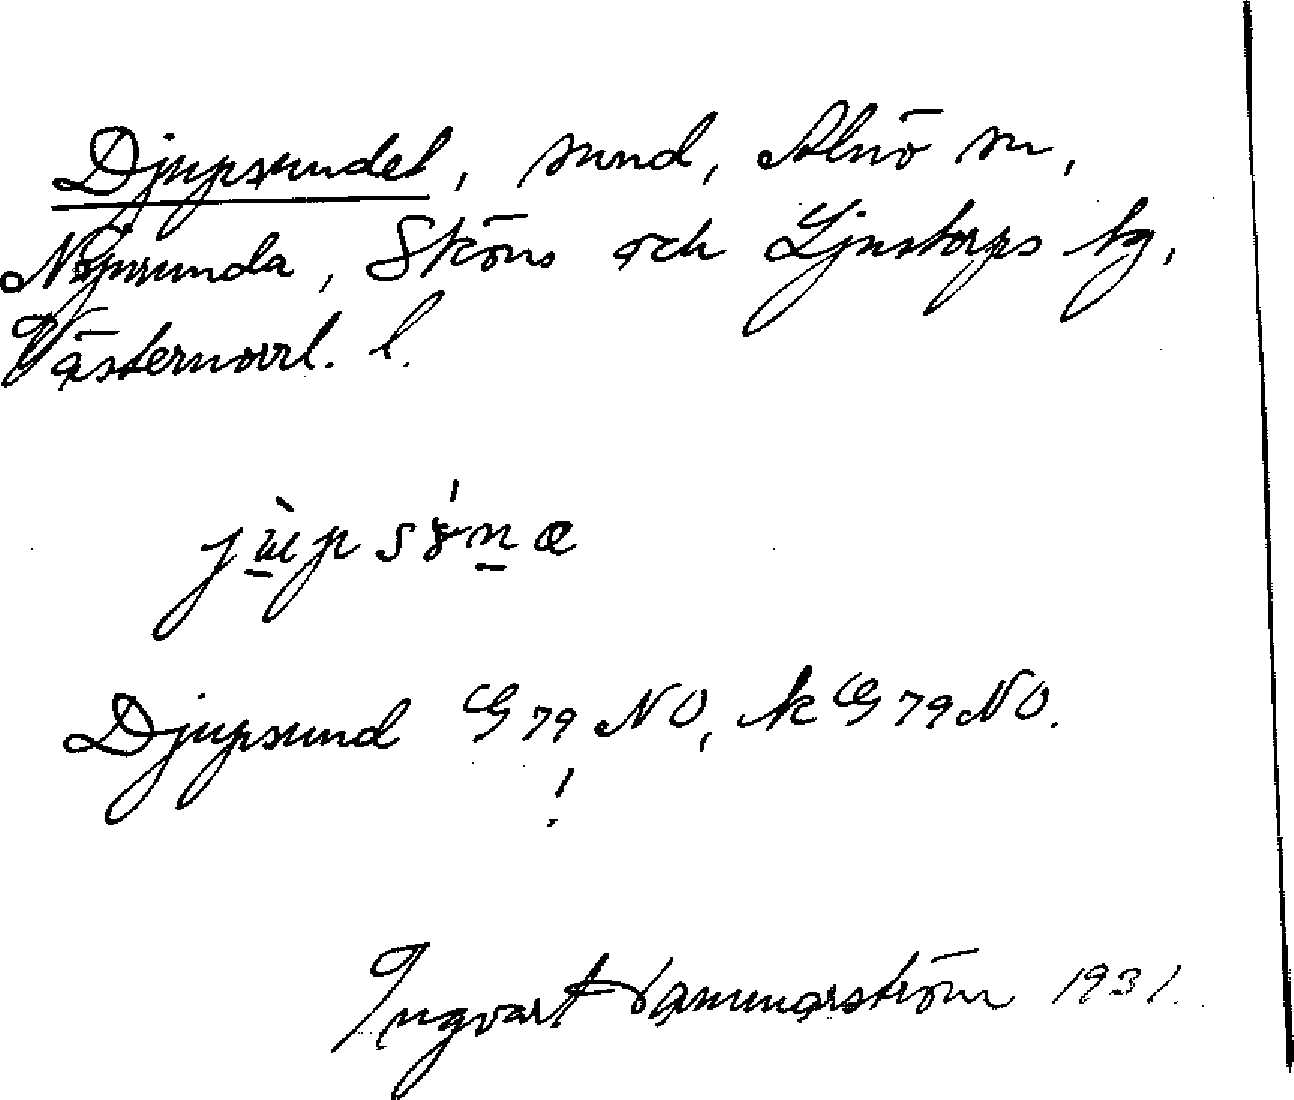 Djupsundet, sund, Alnö sn,
Njurunda, Sköns och Ljustorps tg,
Västernorrl. l.
Djupsund G 79 NO, Ak G 79 NO.
!
Ingvart Hammarström 1931.